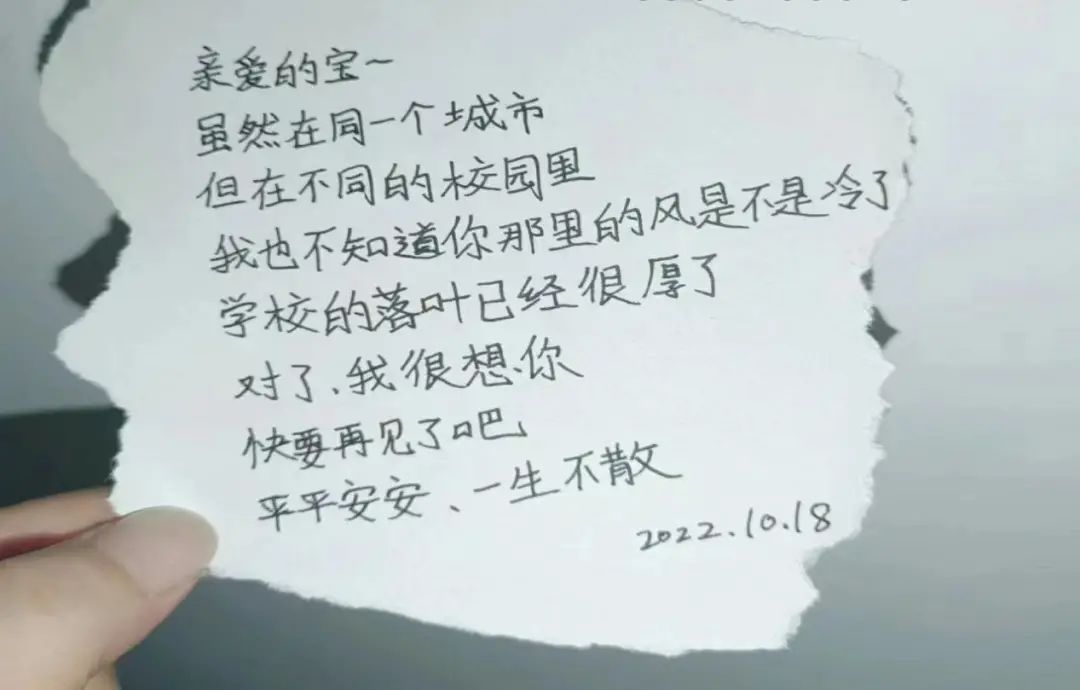 亲爱的宝~
虽然在同一个城市
但在不同的校园里
我也不知道你那里的风是不是冷了
学校的落叶已经很厚了
对了、我很想你
快要再见了吧
平平安安、一生不散
2022.10.18